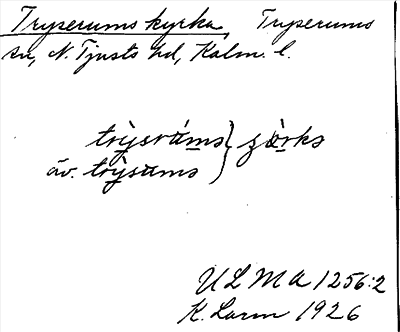 Tryserums kyrka, Tryserums
sn, N. Tjusts hd, Kalm. l.
try̱srúms } ʒö̀rkə
äv. try̱sums
ULMA 1256:2
K. Larm 1926